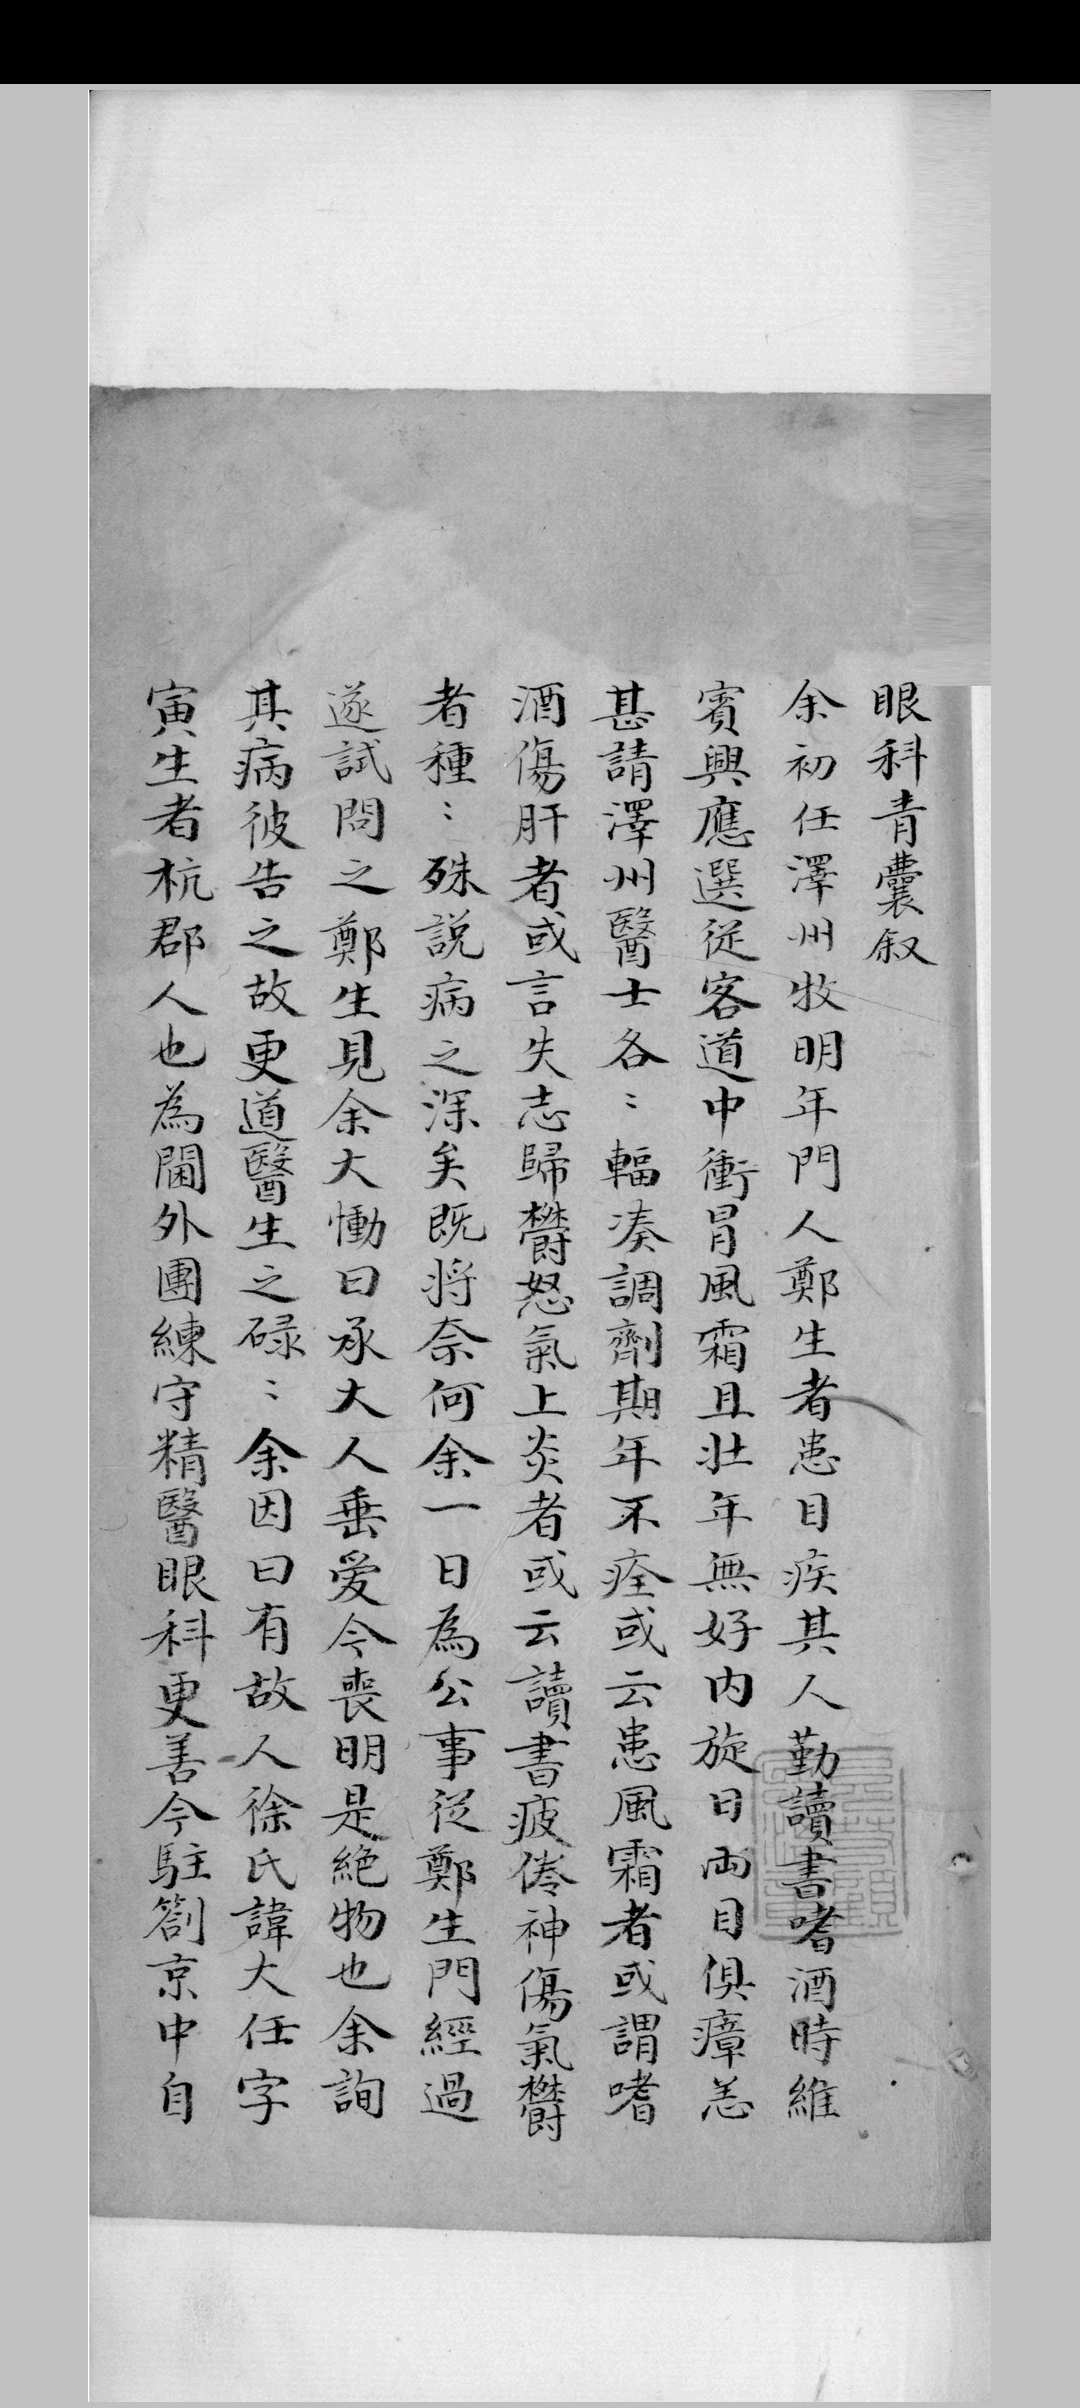 眼科青囊叙
余初任澤州牧明年門人鄭生者患目疾其人勤讀書嗜酒時維
賓興應選從客道中衝冒風霜且壯年無好内旋日兩目俱瘴恙
甚請澤州醫士各〻輻湊調劑期年不痊或云患風霜者或謂嗜
酒傷肝者或言失志歸欝怒氣上炎者或云讀書疲倦神傷氣欝
者種〻殊説病之深矣既将奈何余一日為公事從鄭生門經過
遂試問之鄭生見余大慟曰承大人垂愛今喪明是絶物也余詢
其病彼告之故更道醫生之碌〻余因曰有故人徐氏諱大任字
寅生者杭郡人也為閫外團練守精醫眼科更善今駐劄京中自